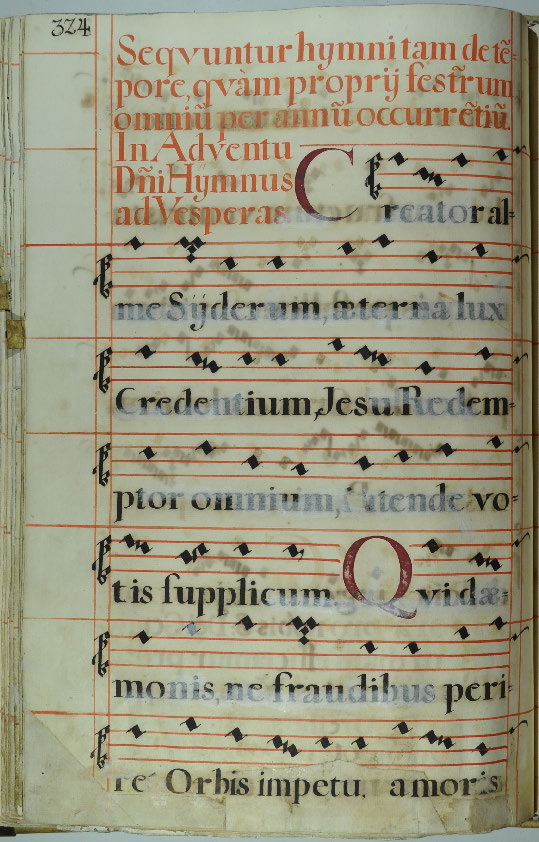 324
Seqvuntur hymni tam de tẽ-
pore, qvàm proprij festr̃um
omniũ per annũ occurrẽtiũ.
In Adventu
Dñi Hymnus
ad Vesperas
Creator al-
me Sÿderum, æterna lux
Credentium, Jesu Redem-
ptor omnium, intende vo-
tis supplicum. Qvi dæ-
monis, ne fraudibus peri-
re Orbis impetu, amoris